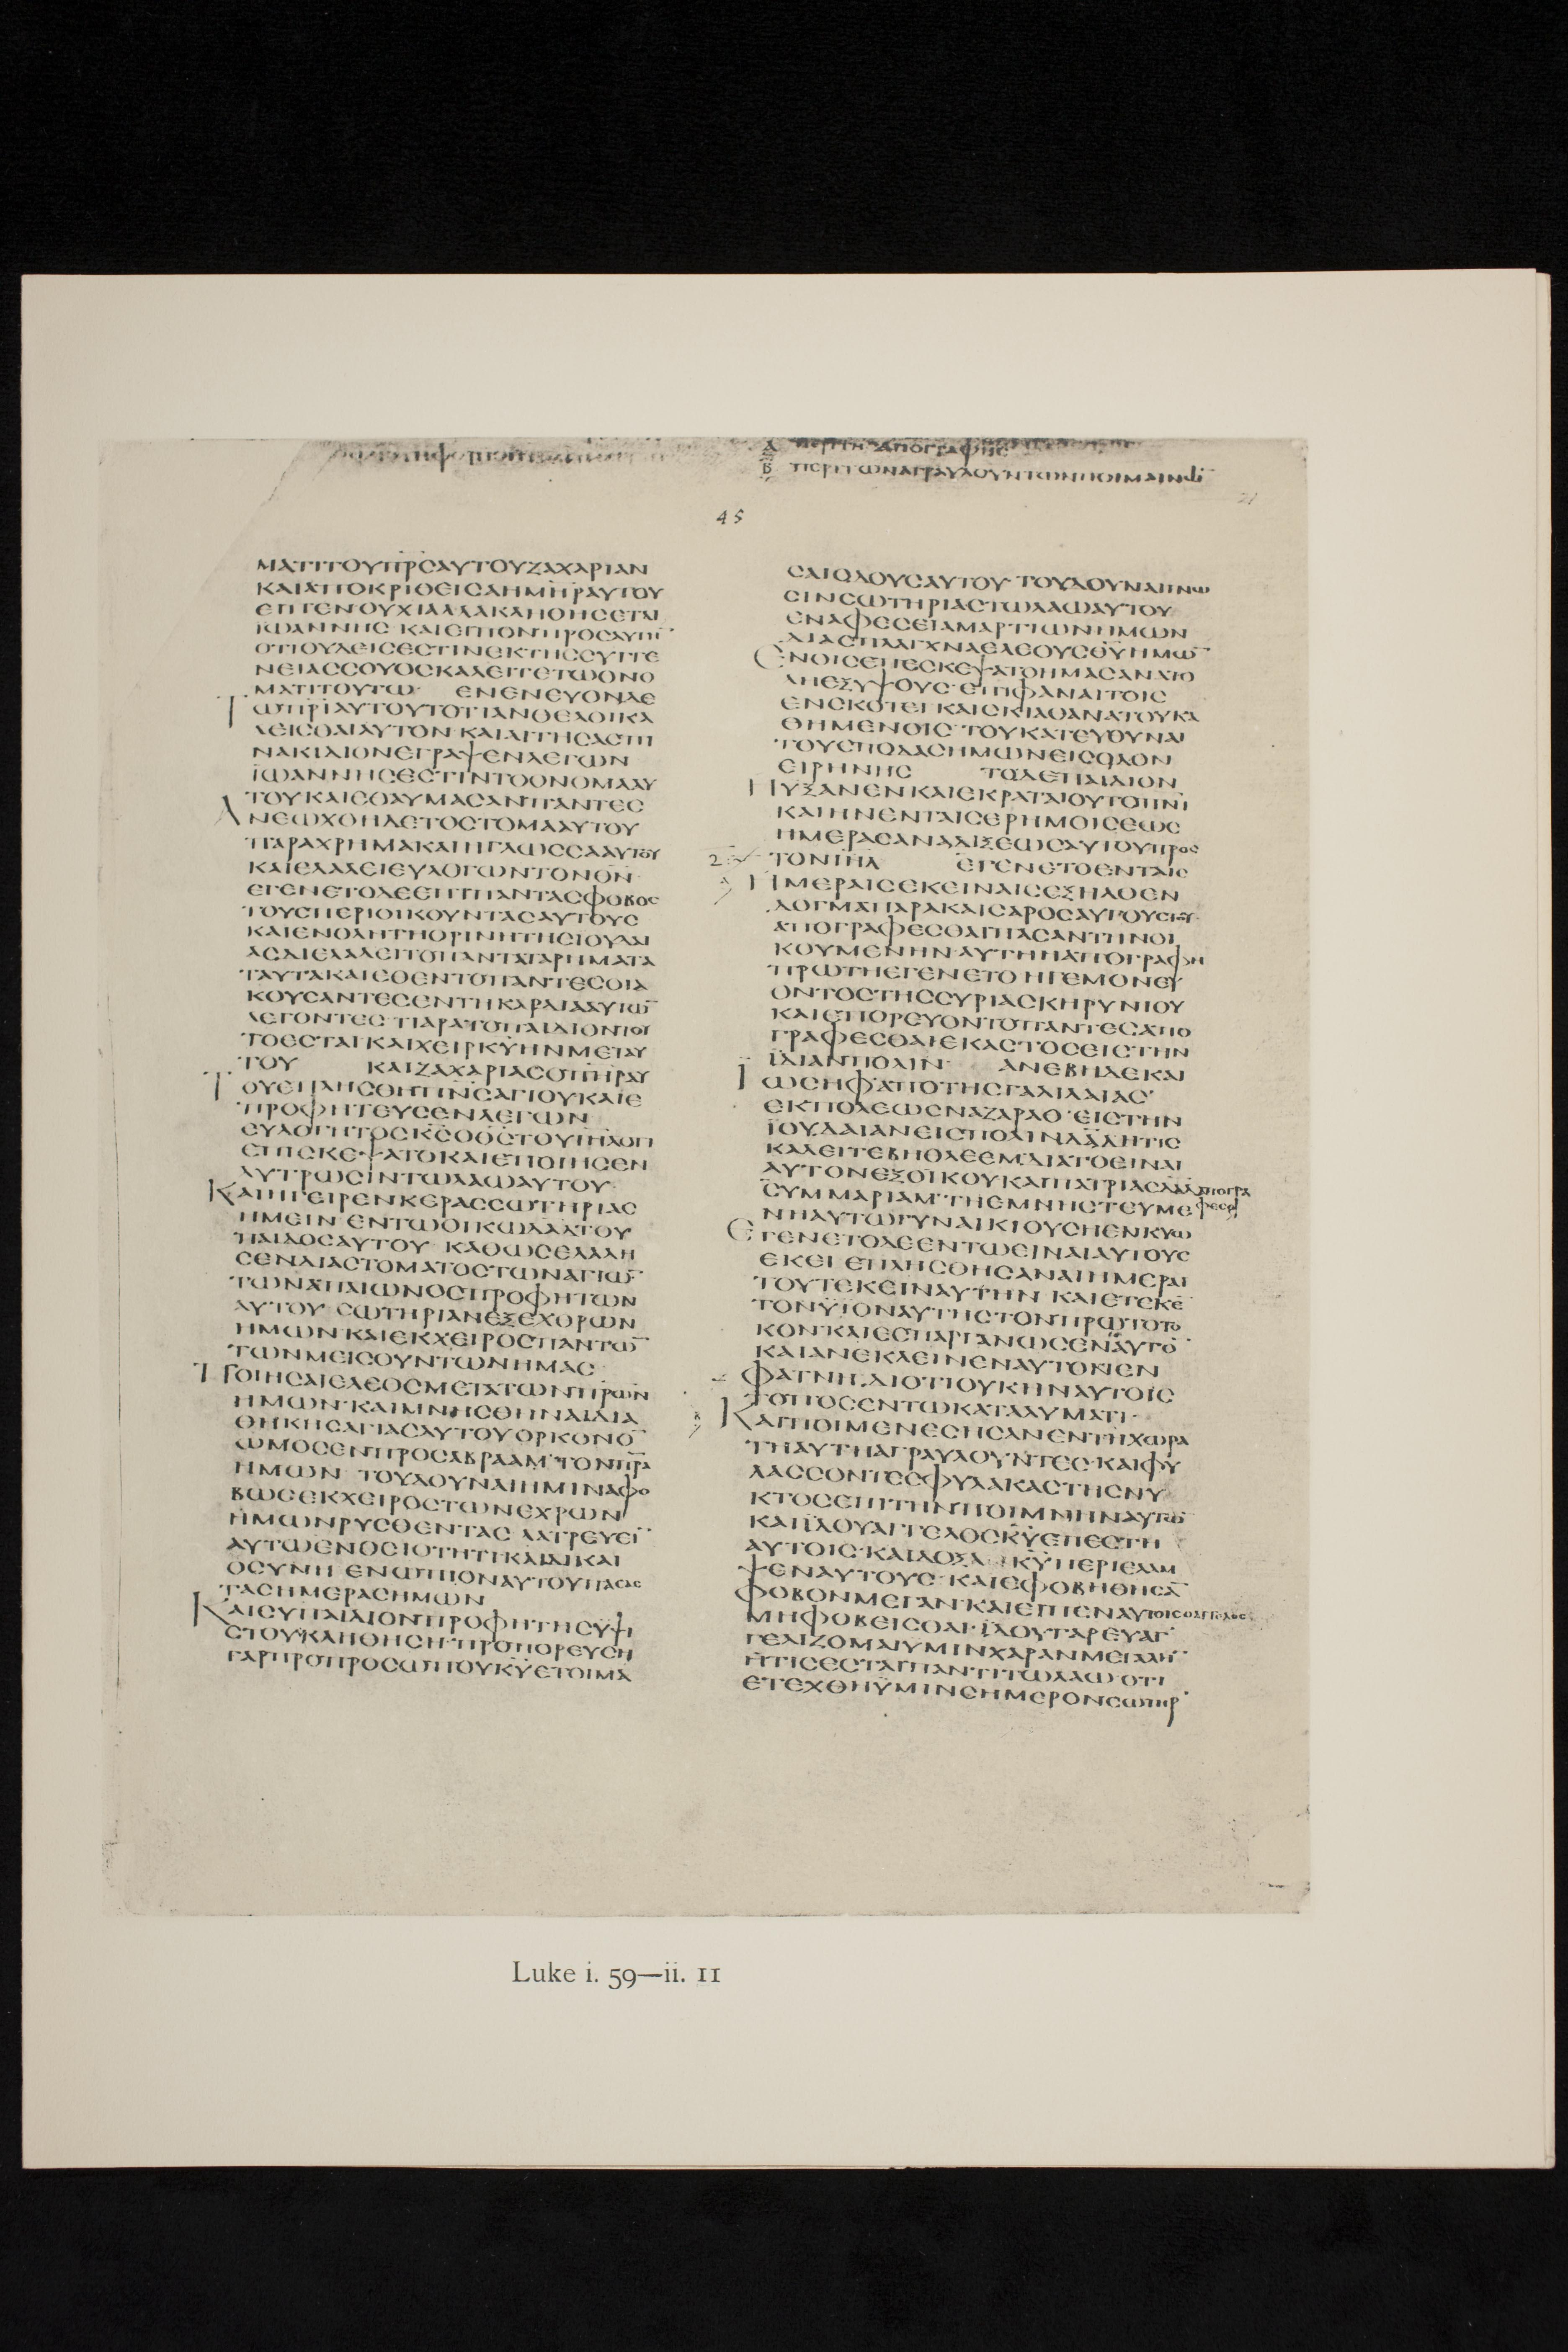 Α ΠΕΡΙΤΗϹΑΠΟΓΡΑΦΗϹ
Β ΠΕΡΙΤΩΝΑΓΡΑΥΛΟΥΝΤΩΝΠΟΙΜΑΙΝΩ̅
21
45
ΜΑΤΙΤΟΥΠ̅Ρ̅Ϲ̅ΑΥΤΟΥΖΑΧΑΡΙΑΝ
ΚΑΙΑΠΟΚΡΙΘΕΙϹΑΗΜ̅Η̅Ρ̅ΑΥΤΟΥ
ΕΙΠΕΝΟΥΧΙΑΛΛΑΚΛΗΘΗϹΕΤΑΙ
ΪΩΑΝΝΗϹ·ΚΑΙΕΙΠΟΝΠΡΟϹΑΥΤΗ̅·
ΟΤΙΟΥΔΕΙϹΕϹΤΙΝΕΚΤΗϹϹΥΓΓΕ
ΝΕΙΑϹϹΟΥΟϹΚΑΛΕΙΤΕΤΩΟΝΟ
ΜΑΤΙΤΟΥΤΩ· ΕΝΕΝΕΥΟΝΔΕ
ΤΩΠ̅Ρ̅Ι̅ΑΥΤΟΥΤΟΤΙΑΝΘΕΛΟΙΚΑ
ΛΕΙϹΘΑΙΑΥΤΟΝ·ΚΑΙΑΙΤΗϹΑϹΠΙ
ΝΑΚΙΔΙΟΝΕΓΡΑΨΕΝΛΕΓΩΝ
ΪΩΑΝΝΗϹΕϹΤΙΝΤΟΟΝΟΜΑΑΥ
ΤΟΥΚΑΙΕΘΑΥΜΑϹΑΝΠΑΝΤΕϹ
ΑΝΕΩΧΘΗΔΕΤΟϹΤΟΜΑΑΥΤΟΥ
ΠΑΡΑΧΡΗΜΑΚΑΙΗΓΛΩϹϹΑΑΥΤΟΥ
ΚΑΙΕΛΑΛΕΙΕΥΛΟΓΩΝΤΟΝΘ̅Ν̅·
ΕΓΕΝΕΤΟΔΕΕΠΙΠΑΝΤΑϹΦΟΒΟϹ
ΤΟΥϹΠΕΡΙΟΙΚΟΥΝΤΑϹΑΥΤΟΥϹ
ΚΑΙΕΝΟΛΗΤΗΟΡΙΝΗΤΗϹΙΟΥΔΑΙ
ΑϹΔΙΕΛΑΛΕΙΤΟΠΑΝΤΑΤΑΡΗΜΑΤΑ
ΤΑΥΤΑΚΑΙΕΘΕΝΤΟΠΑΝΤΕϹΟΙΑ
ΚΟΥϹΑΝΤΕϹΕΝΤΗΚΑΡΔΙΑΑΥΤΩ̅
ΛΕΓΟΝΤΕϹ·ΤΙΑΡΑΤΟΠΑΙΔΙΟΝΤΟΥ
ΤΟΕϹΤΑΙΚΑΙΧΕΙΡΚ̅Υ̅ΗΝΜΕΤΑΥ
ΤΟΥ ΚΑΙΖΑΧΑΡΙΑϹΟΠ̅Η̅Ρ̅ΑΥ
ΤΟΥΕΠΛΗϹΘΗΠ̅Ν̅Ϲ̅ΑΓΙΟΥΚΑΙΕ
ΠΡΟΦΗΤΕΥϹΕΝΛΕΓΩΝ
ΕΥΛΟΓΗΤΟϹΚ̅Ϲ̅ΟΘ̅Ϲ̅ΤΟΥΙ̅Η̅Λ̅ΟΤΙ
ΕΠΕϹΚΕΨΑΤΟΚΑΙΕΠΟΙΗϹΕΝ
ΛΥΤΡΩϹΙΝΤΩΛΑΩΑΥΤΟΥ·
ΚΑΙΗΓΕΙΡΕΝΚΕΡΑϹϹΩΤΗΡΙΑϹ
ΗΜΕΙΝ·ΕΝΤΩΟΙΚΩΔΑΔΤΟΥ
ΠΑΙΔΟϹΑΥΤΟΥ ΚΑΘΩϹΕΛΑΛΗ
ϹΕΝΔΙΑϹΤΟΜΑΤΟϹΤΩΝΑΓΙΩ̅
ΤΩΝΑΠΑΙΩΝΟϹΠΡΟΦΗΤΩΝ
ΑΥΤΟΥ·ϹΩΤΗΡΙΑΝΕΞΕΧΘΡΩΝ
ΗΜΩΝ·ΚΑΙΕΚΧΕΙΡΟϹΠΑΝΤΩ̅
ΤΩΝΜΕΙϹΟΥΝΤΩΝΗΜΑϹ·
ΠΟΙΗϹΑΙΕΛΕΟϹΜΕΤΑΤΩΝΠ̅Ρ̅ΩΝ
ΗΜΩΝ·ΚΑΙΜΝΗϹΘΗΝΑΙΔΙΑ
ΘΗΚΗϹΑΓΙΑϹΑΥΤΟΥΟΡΚΟΝΟ̅
ΩΜΟϹΕΝΠΡΟϹΑΒΡΑΑΜ·ΤΟΝΠ̅Ρ̅Α̅
ΗΜΩΝ ΤΟΥΔΟΥΝΑΙΗΜΙΝΑΦΟ
ΒΩϹΕΚΧΕΙΡΟϹΤΩΝΕΧΡΩΝ
ΗΜΩΝΡΥϹΘΕΝΤΑϹ ΛΑΤΡΕΥΕΙ̅
ΑΥΤΩΕΝΟϹΙΟΤΗΤΙΚΑΙΔΙΚΑΙ
ΟϹΥΝΗ ΕΝΩΠΙΟΝΑΥΤΟΥΠΑϹΑϹ
ΤΑϹΗΜΕΡΑϹΗΜΩΝ
ΚΑΙϹΥΠΑΙΔΙΟΝΠΡΟΦΗΤΗϹΥΨΙ
ϹΤΟΥΚΛΗΘΗϹΗ·ΠΡΟΠΟΡΕΥϹΗ
ΓΑΡΠΡΟΠΡΟϹΩΠΟΥΚ̅Υ̅ΕΤΟΙΜΑ
ϹΑΙΟΔΟΥϹΑΥΤΟΥ·ΤΟΥΔΟΥΝΑΙΓΝΩ
ϹΙΝϹΩΤΗΡΙΑϹΤΩΛΑΩΑΥΤΟΥ
ΕΝΑΦΕϹΕΙΑΜΑΡΤΙΩΝΗΜΩΝ
ΔΙΑϹΠΛΑΓΧΝΑΕΛΕΟΥϹΘ̅Υ̅ΗΜΩ̅
ΕΝΟΙϹΕΠΕϹΚΕΨΑΤΟΗΜΑϹΑΝΑΤΟ
ΛΗΕΞΥΨΟΥϹ·ΕΠΙΦΑΝΑΙΤΟΙϹ
ΕΝϹΚΟΤΕΙΚΑΙϹΚΙΑΘΑΝΑΤΟΥΚΑ
ΘΗΜΕΝΟΙϹ·ΤΟΥΚΑΤΕΥΘΥΝΑΙ
ΤΟΥϹΠΟΔΑϹΗΜΩΝΕΙϹΟΔΟΝ
ΕΙΡΗΝΗϹ ΤΟΔΕΠΑΙΔΙΟΝ
ΗΥΞΑΝΕΝΚΑΙΕΚΡΑΤΑΙΟΥΤΟΠ̅Ν̅Ι̅
ΚΑΙΗΝΕΝΤΑΙϹΕΡΗΜΟΙϹΕΩϹ
ΗΜΕΡΑϹΑΝΑΔΙΞΕΩϹΑΥΤΟΥΠΡΟϹ
2 ΤΟΝΙ̅Η̅Λ̅ ΕΓΕΝΕΤΟΕΝΤΑΙϹ
Α ΗΜΕΡΑΙϹΕΚΕΙΝΑΙϹΕΞΗΛΘΕΝ
ΔΟΓΜΑΠΑΡΑΚΑΙϹΑΡΟϹΑΥΓΟΥϹΤΟΥ·
ΑΠΟΓΡΑΦΕϹΘΑΙΠΑϹΑΝΤΗΝΟΙ
ΚΟΥΜΕΝΗΝ·ΑΥΤΗΗΑΠΟΓΡΑΦΗ
ΠΡΩΤΗΕΓΕΝΕΤΟ·ΗΓΕΜΟΝΕΥ
ΟΝΤΟϹΤΗϹϹΥΡΙΑϹΚΗΡΥΝΙΟΥ
ΚΑΙΕΠΟΡΕΥΟΝΤΟΠΑΝΤΕϹΑΠΟ
ΓΡΑΦΕϹΘΑΙΕΚΑϹΤΟϹΕΙϹΤΗΝ
ΪΔΙΑΝΠΟΛΙΝ· ΑΝΕΒΗΔΕΚΑΙ
ΪΩϹΗΦΑΠΟΤΗϹΓΑΛΙΛΑΙΑϹ
ΕΚΠΟΛΕΩϹΝΑΖΑΡΑΘ·ΕΙϹΤΗΝ
ΪΟΥΔΑΙΑΝΕΙϹΠΟΛΙΝΔ̅Α̅Δ̅ΗΤΙϹ
ΚΑΛΕΙΤΕΒΗΘΛΕΕΜΔΙΑΤΟΕΙΝΑΙ
ΑΥΤΟΝΕΞΟΙΚΟΥΚΑΙΠΑΤΡΙΑϹΔ̅Α̅Δ̅ΑΠΟΓΡΑ
ΦΕϹΘ
ϹΥΜΜΑΡΙΑΜ·ΤΗΕΜΝΗϹΤΕΥΜΕ
ΝΗΑΥΤΩΓΥΝΑΙΚΙΟΥϹΗΕΝΚΥΩ
ΕΓΕΝΕΤΟΔΕΕΝΤΩΕΙΝΑΙΑΥΤΟΥϹ
ΕΚΕΙ ΕΠΛΗϹΘΗϹΑΝΑΙΗΜΕΡΑΙ
ΤΟΥΤΕΚΕΙΝΑΥΤΗΝ ΚΑΙΕΤΕΚΕ̅
ΤΟΝΫΙΟΝΑΥΤΗϹΤΟΝΠΡΩΤΟΤΟ
ΚΟΝ·ΚΑΙΕϹΠΑΡΓΑΝΩϹΕΝΑΥΤΟ̅
ΚΑΙΑΝΕΚΛΕΙΝΕΝΑΥΤΟΝΕΝ
ΦΑΤΝΗ·ΔΙΟΤΙΟΥΚΗΝΑΥΤΟΙϹ
ΤΟΠΟϹΕΝΤΩΚΑΤΑΛΥΜΑΤΙ·
Β ΚΑΙΠΟΙΜΕΝΕϹΗϹΑΝΕΝΤΗΧΩΡΑ
ΤΗΑΥΤΗΑΓΡΑΥΛΟΥΝΤΕϹ·ΚΑΙΦΥ
ΛΑϹϹΟΝΤΕϹΦΥΛΑΚΑϹΤΗϹΝΥ
ΚΤΟϹΕΠΙΤΗΝΠΟΙΜΝΗΝΑΥΤΩ̅
ΚΑΙΪΔΟΥΑΓΓΕΛΟϹΚ̅Υ̅ΕΠΕϹΤΗ
ΑΥΤΟΙϹ·ΚΑΙΔΟΞΑ Κ̅Υ̅ΠΕΡΙΕΛΑΜ
ΨΕΝΑΥΤΟΥϹ·ΚΑΙΕΦΟΒΗΘΗϹΑ̅
ΦΟΒΟΝΜΕΓΑΝ·ΚΑΙΕΙΠΕΝΑΥΤΟΙϹΟΑΓΓΕΛΟϹ
ΜΗΦΟΒΕΙϹΘΑΙ·ΪΔΟΥΓΑΡΕΥΑΓ
ΓΕΛΙΖΟΜΑΙΥΜΙΝΧΑΡΑΝΜΕΓΑΛΗ̅·
ΗΤΙϹΕϹΤΑΙΠΑΝΤΙΤΩΛΑΩ·ΟΤΙ
ΕΤΕΧΘΗΫΜΙΝϹΗΜΕΡΟΝϹΩΤΗΡ·
Luke i. 59—ii. 11